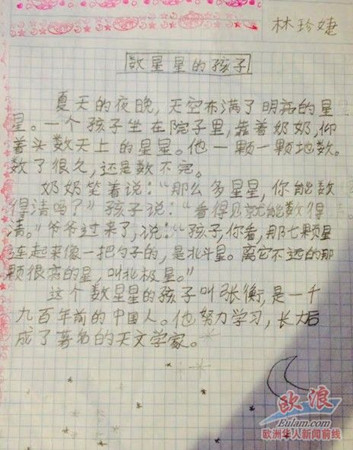 林玲婕
数星星的孩子
夏天的夜晚，天空布满了明亮的星
星。一个孩子坐在院子里，靠着奶奶，仰
着头数天上的星星。他一颗一颗地数。
数了很久，还是数不完。
奶奶笑着说：“那么多星星，你能数
得清吗？”孩子说：“看得见就能数得
清。”爷爷过来了，说：“孩子，你看，那七颗星
连起来像一把勺子的，是北斗星。离它不远的那
颗很亮的星，叫北极星。”
这个数星星的孩子叫张衡，是一千
九百年前的中国人。他努力学习，长大后
成了著名的天文学家。
欧浪
Eulam.com
欧洲华人新闻前线